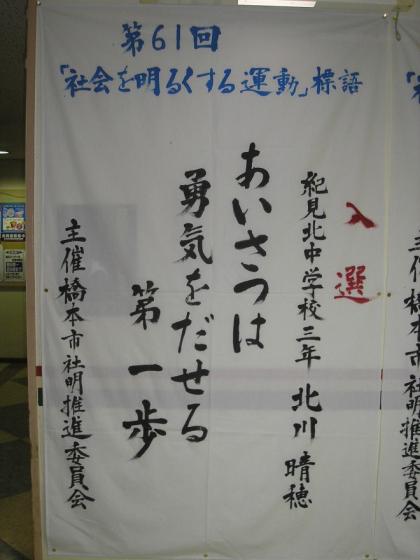 第61回
「社会を明るくする運動」標語
入選
紀見北中学校三年 北川晴穂
あいさつは
勇気をだせる
第一歩
主催橋本市社明推進委員会